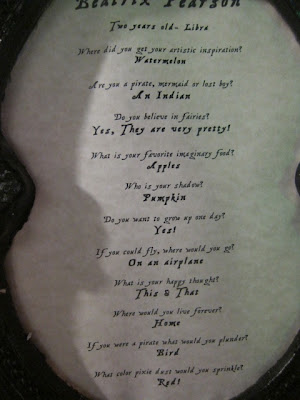 Beatrix Pearson
Two years old- Libra
Where did you get your artistic inspiration?
Watermelon
Are you a pirate, mermaid or lost boy?
An Indian
Do you believe in fairies?
Yes, They are very pretty!
What is your favorite imaginary food?
Apples
Who is your shadow?
Pumpkin
Do you want to grow up one day?
Yes!
If you could fly, where would you go?
On an airplane
What is your happy thought?
This & That
Where would you live forever?
Home
If you were a pirate what would you plunder?
Bird
What color pixie dust would you sprinkle?
Red!